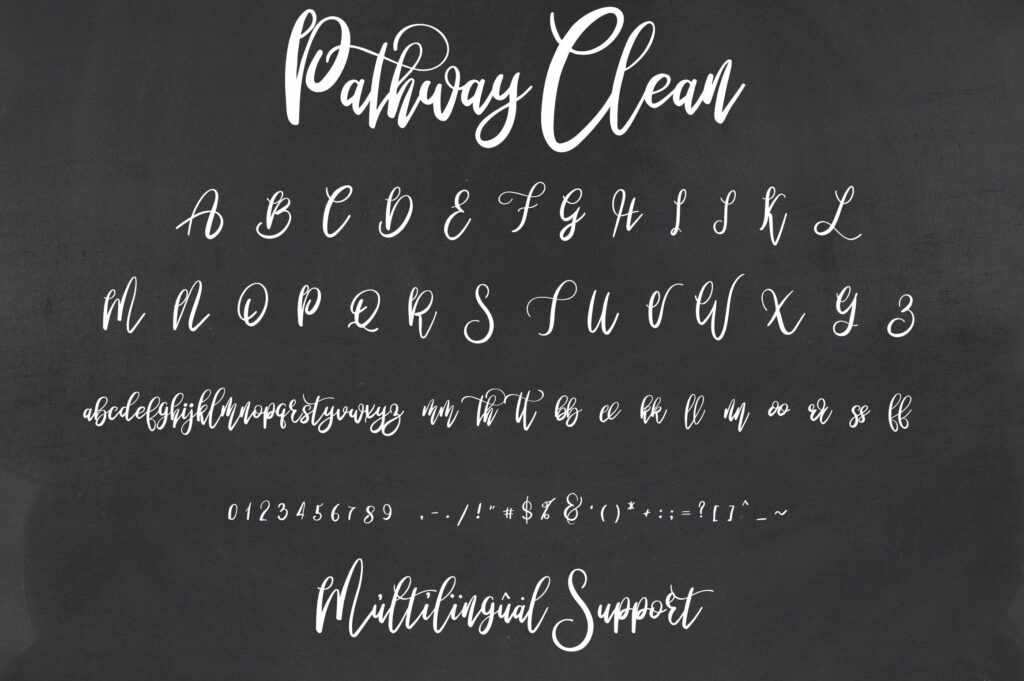 Pathway Clean
A B C D E F G H I J K L
M N O P Q R S T U V W X Y Z
abcdefghijklmnopqrstuvwxyz mm th tt bb ee kk ll nn oo rr ss ff
0123456789 ,-./!"#$%&'()*+:;=?[]^_~
Múltïlïngûàl Support